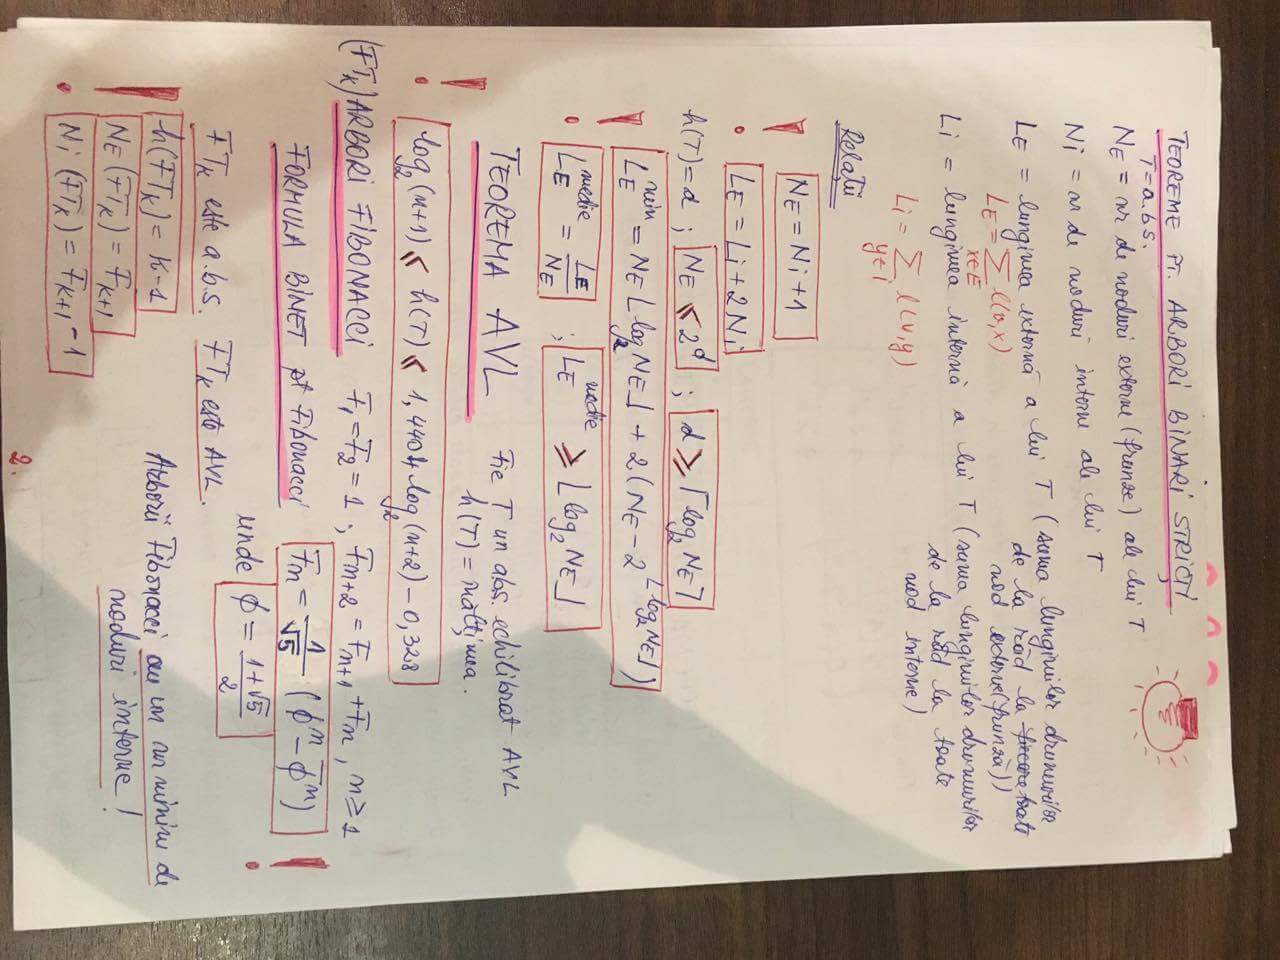 TEOREME PT. ARBORI BINARI STRICȚI
T = a.b.s.
NE = nr de noduri externe (frunze) ale lui T
Ni = nr de noduri interne ale lui T
LE = lungimea externă a lui T (suma lungimilor drumurilor
de la răd la fiecare toate
nod externe (frunză))
LE = ∑ l(v,x)
x∈E
Li = lungimea internă a lui T (suma lungimilor drumurilor
de la răd la toate
nod interne)
Li = ∑ l(v,y)
y∈i
Relații
! NE = Ni + 1
LE = Li + 2Ni
h(T) = d ; NE ≤ 2^d ; d ≥ ⌈log₂ NE⌉
! LE^min = NE ⌊log₂ NE⌋ + 2(NE − 2^⌊log₂ NE⌋)
LE^medie = LE/NE ; LE^medie ≥ ⌊log₂ NE⌋
TEOREMA AVL Fie T un abs. echilibrat AVL
h(T) = înălțimea.
! log₂(n+1) ≤ h(T) ≤ 1,4404 log₂(n+2) − 0,328
(FTk) ARBORI FIBONACCI F₁ = F₂ = 1 ; Fn+2 = Fn+1 + Fn , n ≥ 1
FORMULA BINET pt Fibonacci Fn = 1/√5 (ϕ^n − ϕ̅^n) !
unde ϕ = (1+√5)/2
FTk este a.b.s. FTk este AVL.
! h(FTk) = K-1
NE(FTk) = Fk+1
Ni(FTk) = Fk+1 - 1
Arborii Fibonacci au un nr minim de
noduri interne!
2.